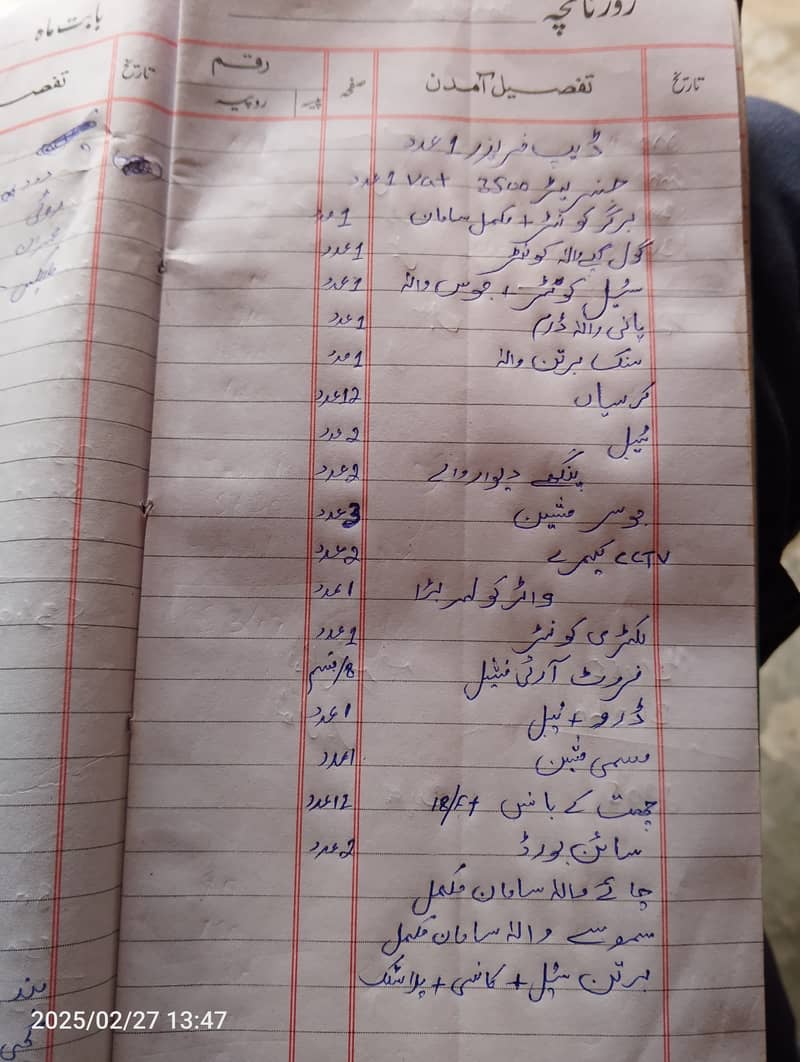 روزنامچہ
بابت ماہ
تاریخ تفصیل آمدن صفحہ رقم
روپیہ پیسہ
تاریخ
ڈیپ فریزر 1 عدد
جنریٹر 3500 Vat 1 عدد
برگر کونٹر + مکمل سامان 1 عدد
گول گپے والہ کونٹر 1 عدد
سٹیل کونٹر + جوس والا 1 عدد
پانی والا ڈرم 1 عدد
سنک برتن والا 1 عدد
کرسیاں 12 عدد
ٹیبل 2 عدد
پنکھے دیوار والے 2 عدد
جوسر مشین 3 عدد
CCTV کیمرے 2 عدد
واٹر کولر بڑا 1 عدد
لکڑی کونٹر 1 عدد
فروٹ آرٹی فیشل 8/قسم
1 عدد
مسمی مشین 1 عدد
چھت کے بانس 18/Ft 12 عدد
سائن بورڈ 2 عدد
چائے والا سامان مکمل
سموسے والا سامان مکمل
برتن سٹیل + کانسی + پلاسٹک
2025/02/27 13:47